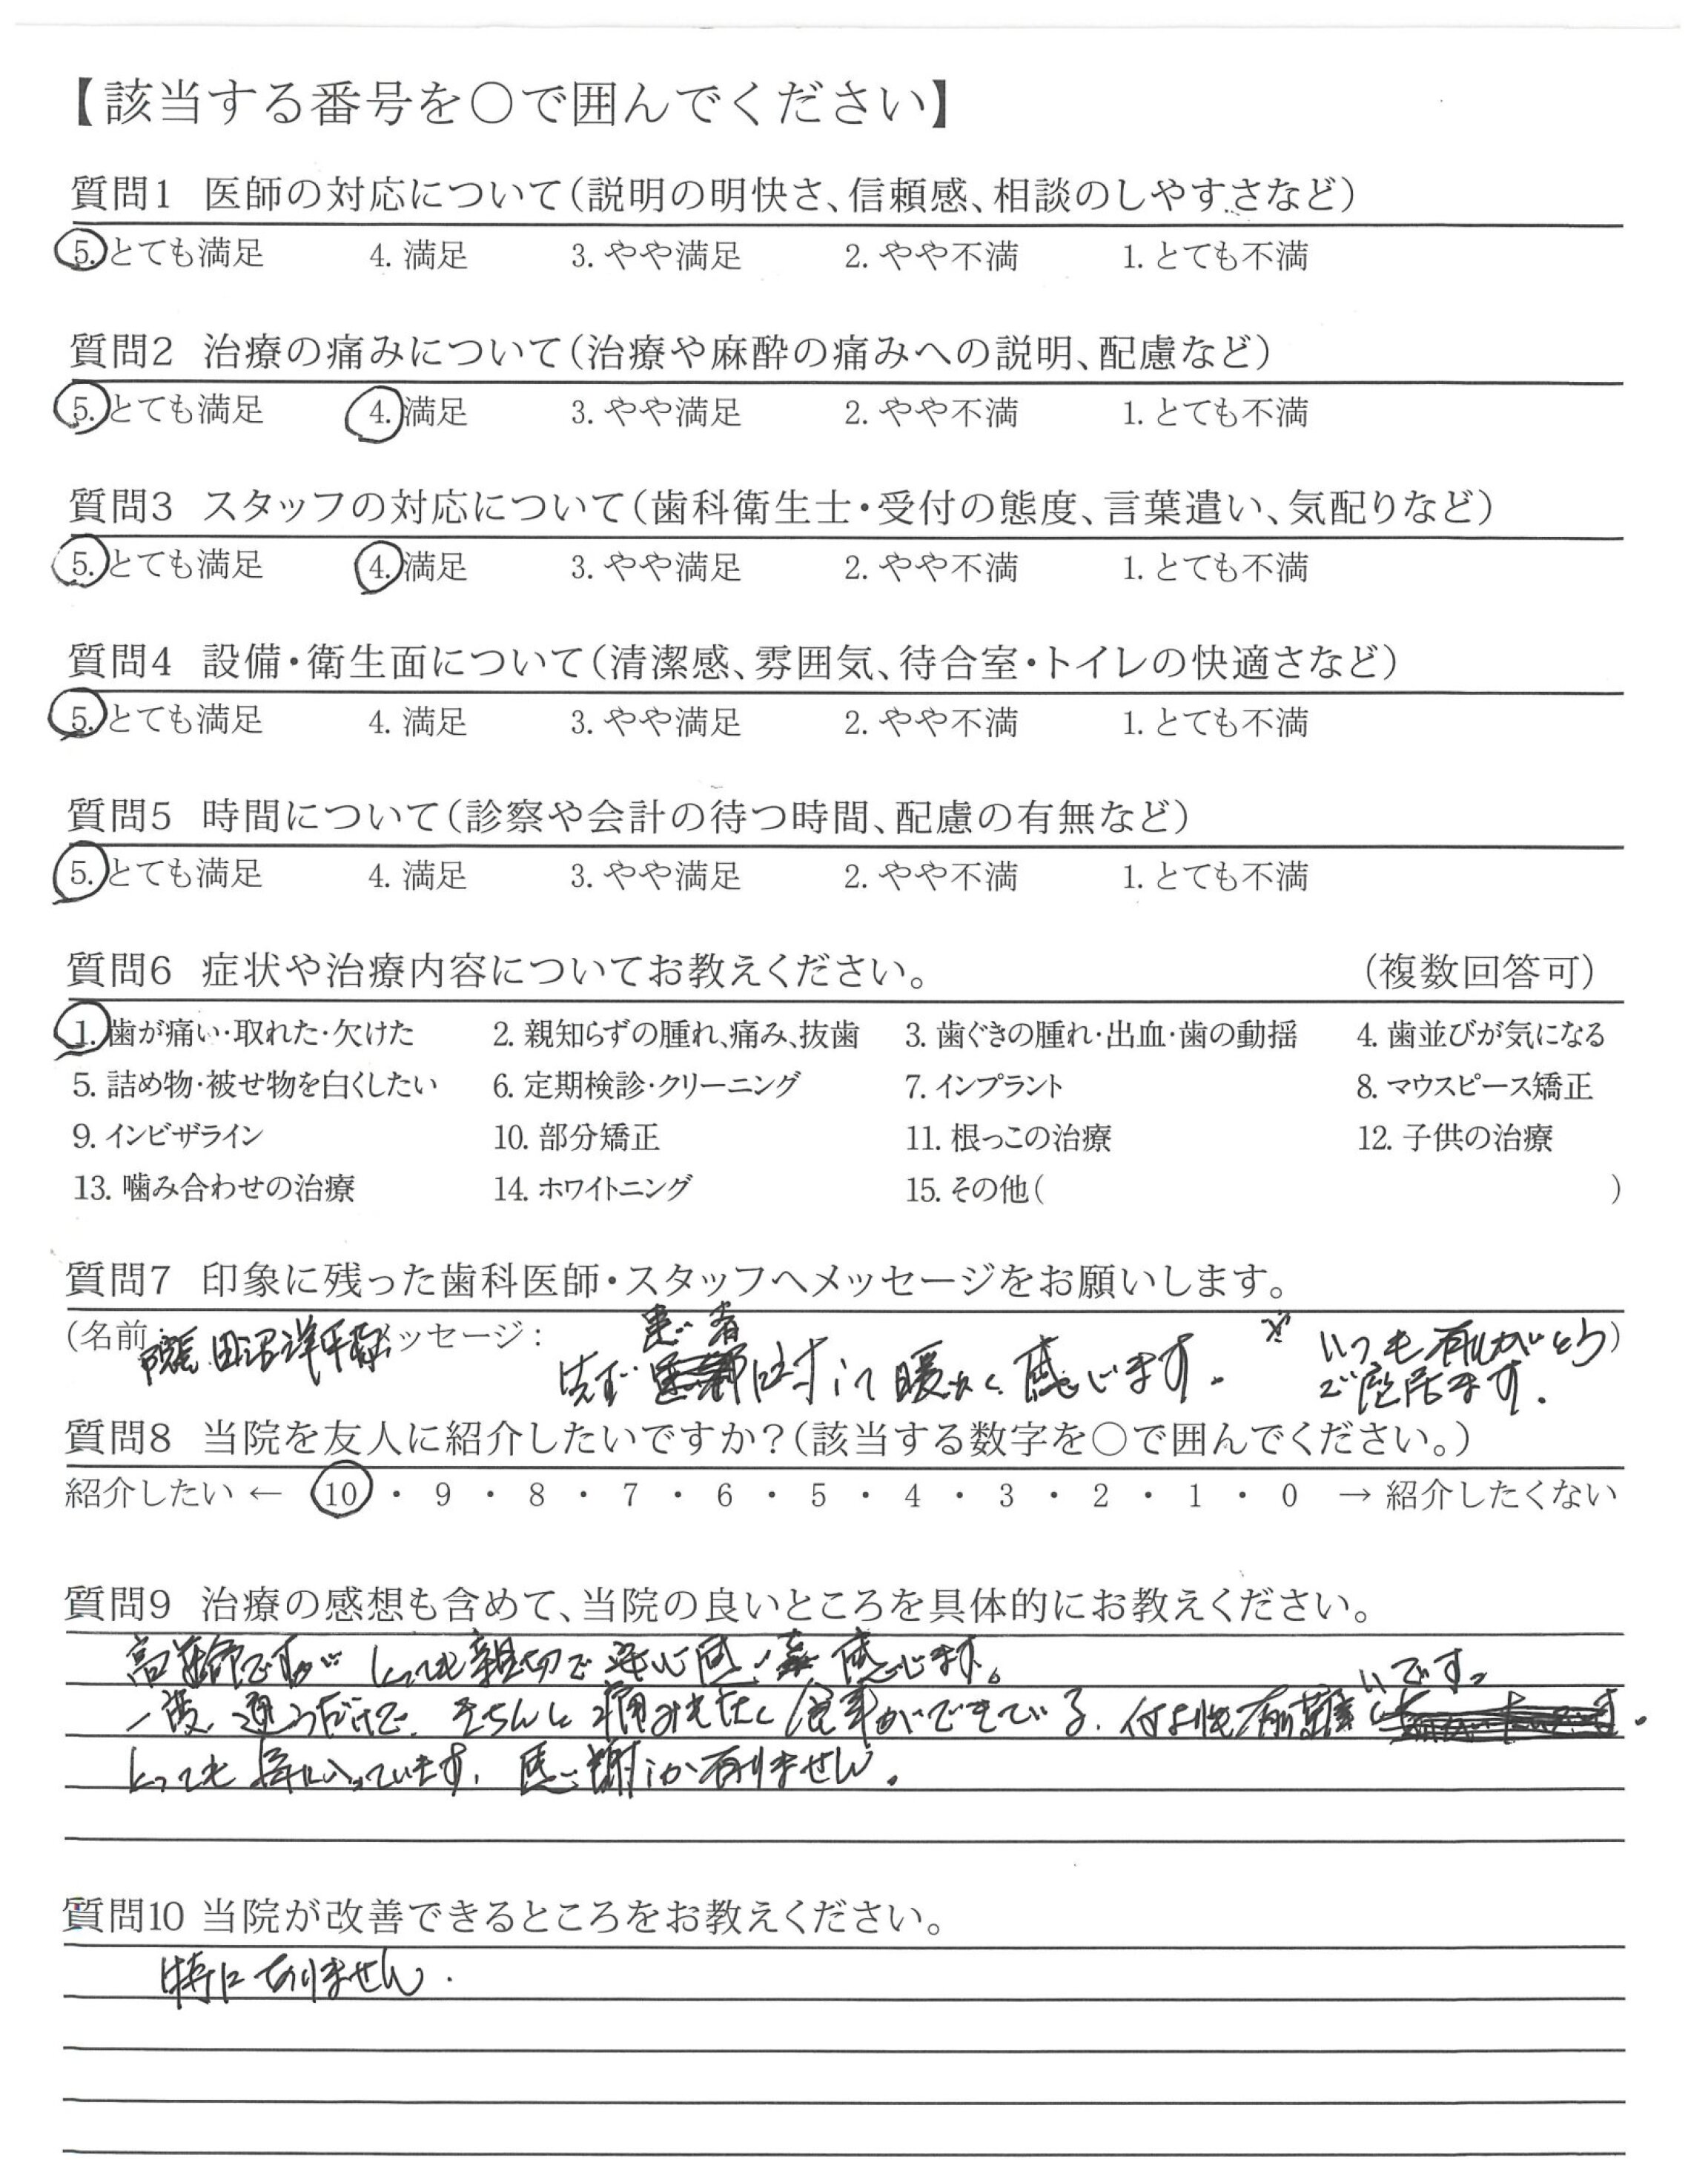 【該当する番号を○で囲んでください】
質問1 医師の対応について(説明の明快さ、信頼感、相談のしやすさなど)
5. とても満足 4. 満足 3. やや満足 2. やや不満 1. とても不満
質問2 治療の痛みについて(治療や麻酔の痛みへの説明、配慮など)
5. とても満足 4. 満足 3. やや満足 2. やや不満 1. とても不満
質問3 スタッフの対応について(歯科衛生士・受付の態度、言葉遣い、気配りなど)
5. とても満足 4. 満足 3. やや満足 2. やや不満 1. とても不満
質問4 設備・衛生面について(清潔感、雰囲気、待合室・トイレの快適さなど)
5. とても満足 4. 満足 3. やや満足 2. やや不満 1. とても不満
質問5 時間について(診察や会計の待つ時間、配慮の有無など)
5. とても満足 4. 満足 3. やや満足 2. やや不満 1. とても不満
質問6 症状や治療内容についてお教えください。 (複数回答可)
1. 歯が痛い・取れた・欠けた 2. 親知らずの腫れ、痛み、抜歯 3. 歯ぐきの腫れ・出血・歯の動揺 4. 歯並びが気になる
5. 詰め物・被せ物を白くしたい 6. 定期検診・クリーニング 7. インプラント 8. マウスピース矯正
9. インビザライン 10. 部分矯正 11. 根っこの治療 12. 子供の治療
13. 噛み合わせの治療 14. ホワイトニング 15. その他( )
質問7 印象に残った歯科医師・スタッフへメッセージをお願いします。
(名前: 田沼 メッセージ: 患者 いつも有りがとう)
先ず に対して暖かく感じます。 ご座居ます。
質問8 当院を友人に紹介したいですか?(該当する数字を○で囲んでください。)
紹介したい ← 10 ・ 9 ・ 8 ・ 7 ・ 6 ・ 5 ・ 4 ・ 3 ・ 2 ・ 1 ・ 0 → 紹介したくない
質問9 治療の感想も含めて、当院の良いところを具体的にお教えください。
高齢ですが とっても親切で 感じます。
一度、通うだけで、きちんと痛みもなく食事ができている。何よりも有難いです。
とっても気に入っています。感謝しか有りません。
質問10 当院が改善できるところをお教えください。
特にありません.